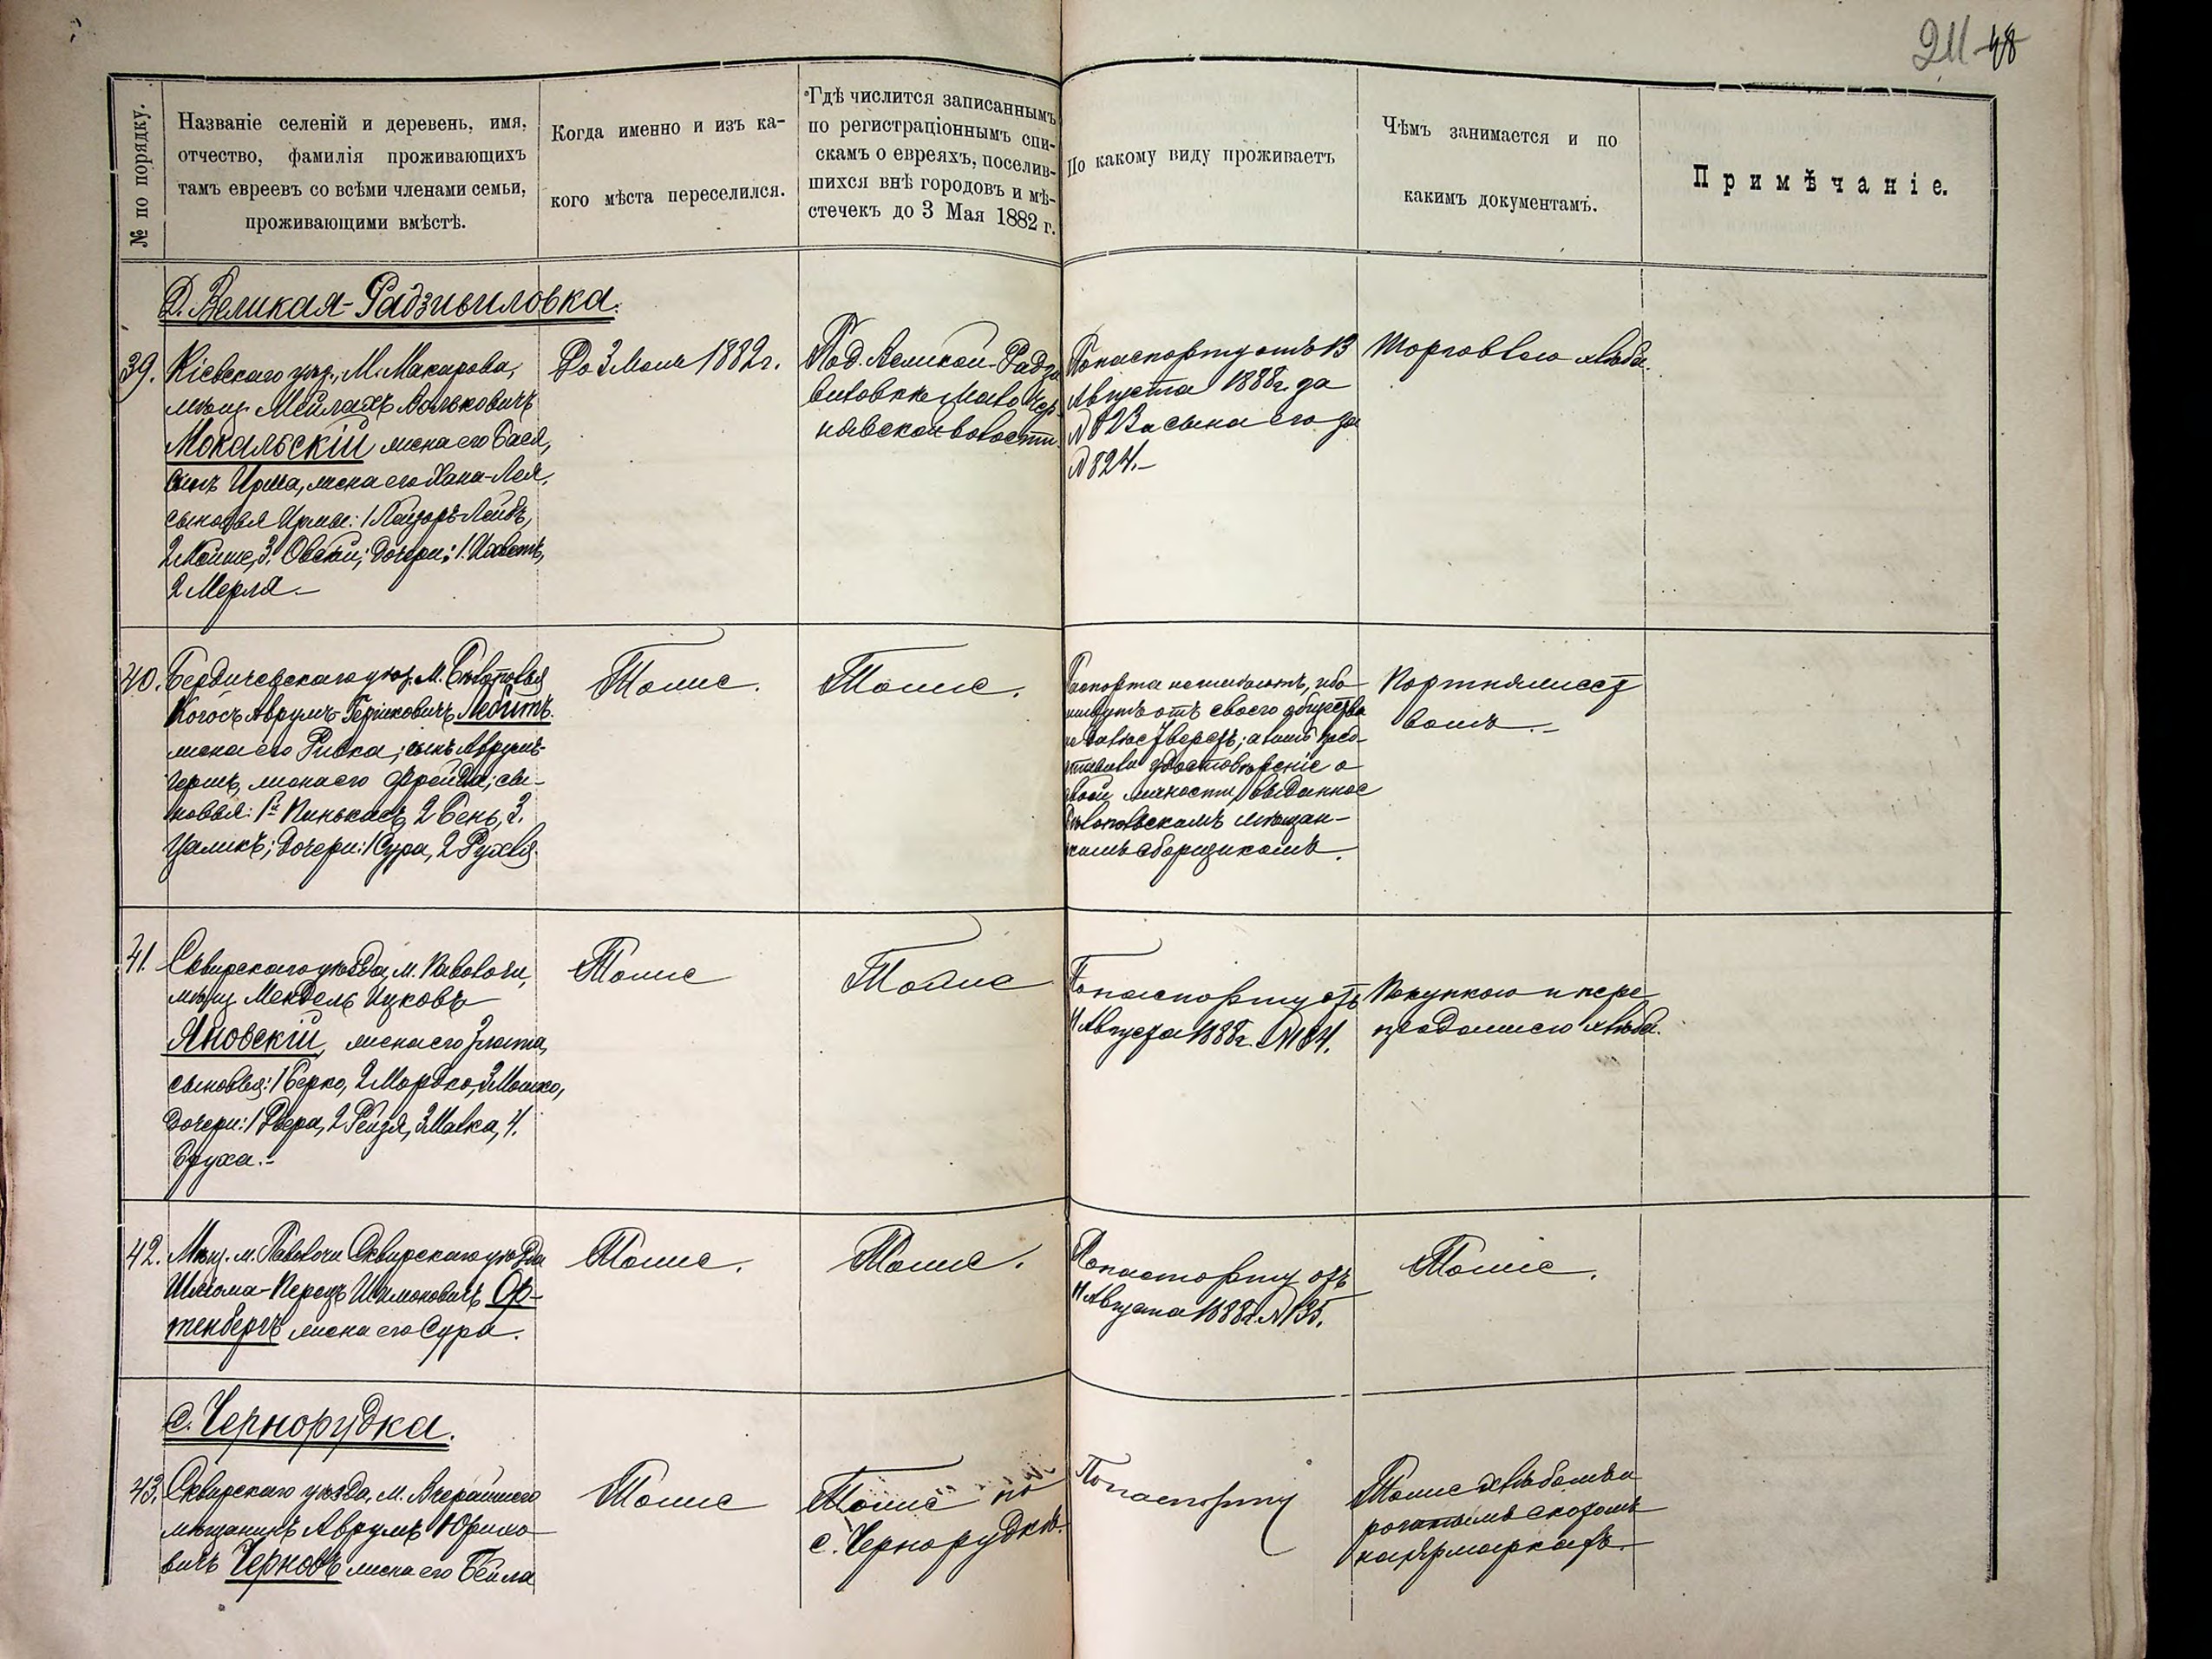 211 48
№ по порядку.
Названіе селеній и деревень, имя,
отчество, фамилія проживающихъ
тамъ евреевъ со всѣми членами семьи,
проживающими вмѣстѣ.
Когда именно и изъ ка-
кого мѣста переселился.
Гдѣ числится записаннымъ
по регистраціоннымъ спи-
скамъ о евреяхъ, поселив-
шихся внѣ городовъ и мѣ-
стечекъ до 3 Мая 1882 г.
По какому виду проживаетъ
Чѣмъ занимается и по
какимъ документамъ.
Примѣчаніе.
Д. Великая-Радзивиловка.
39.
Кіевскаго уѣз., М. Макарова,
мѣщ. Мейлахъ Вольковичъ
Мокальскій жена его Бася,
сынъ Ирша, жена его Хана-Лея,
сыновья Ирши: 1 Лейзоръ-Лейбъ,
2 Мойше, 3. Овсѣй; дочери: 1. Ихветъ,
2 Мерля.—
До 3 Мая 1882 г.
По д. Великой-Радзи
виловкѣ Мало Чер-
нявской волости.
По паспорту отъ 13
Августа 1888 г. за
№ 823 а сына его за
№ 824.—
Торговлею хлѣба.
40.
Бердичевскаго уѣз. М. Бѣлополья
Когосъ Аврумъ-Гершковичъ Лебитъ.
жена его Ривка; сынъ Аврумъ-
Гершъ, жена его Фрейда; сы-
новья: 1й Пинькасъ, 2 Бень, 3.
Цаликъ; дочери: 1 Сура, 2 Рухля.
Тоже.
Тоже.
Паспорта не имѣютъ, ибо
отъ своего общества
удостовѣреніе о
своей личности, выданное
Бѣлопольскимъ мѣщан-
скимъ сборщикомъ.
Портняжест
вомъ.—
41.
Сквирскаго уѣзда, М. Паволочи,
мѣщ Мендель Ицковъ
Яновскій, жена его Злата,
сыновья: 1 Берко, 2 Мордко, 3 Мошко,
дочери: 1 Двера, 2 Рейзя, 3 Малка, 4.
Бруха.—
Тоже
Тоже
По паспорту отъ
11 Августа 1888 г. № 134.
Покупкою и пере
продажею хлѣба.
42.
Мѣщ. м. Паволочи Сквирскаго уѣзда
Шлёма-Перецъ Шимоновичъ Ор-
тенбергъ жена его Сура.
Тоже.
Тоже.
По паспорту отъ
11 Августа 1888 г. № 135.
Тоже.
с. Чернорудка.
43.
Сквирскаго уѣзда, М. Вчерайшего
мѣщанинъ Аврумъ Юрихо-
вичъ Черновъ жена его Бейла
Тоже
Тоже по
с. Чернорудкѣ.
По паспорту
Тоже хлѣбомъ и
рогатымъ скотомъ
на ярмаркахъ.—